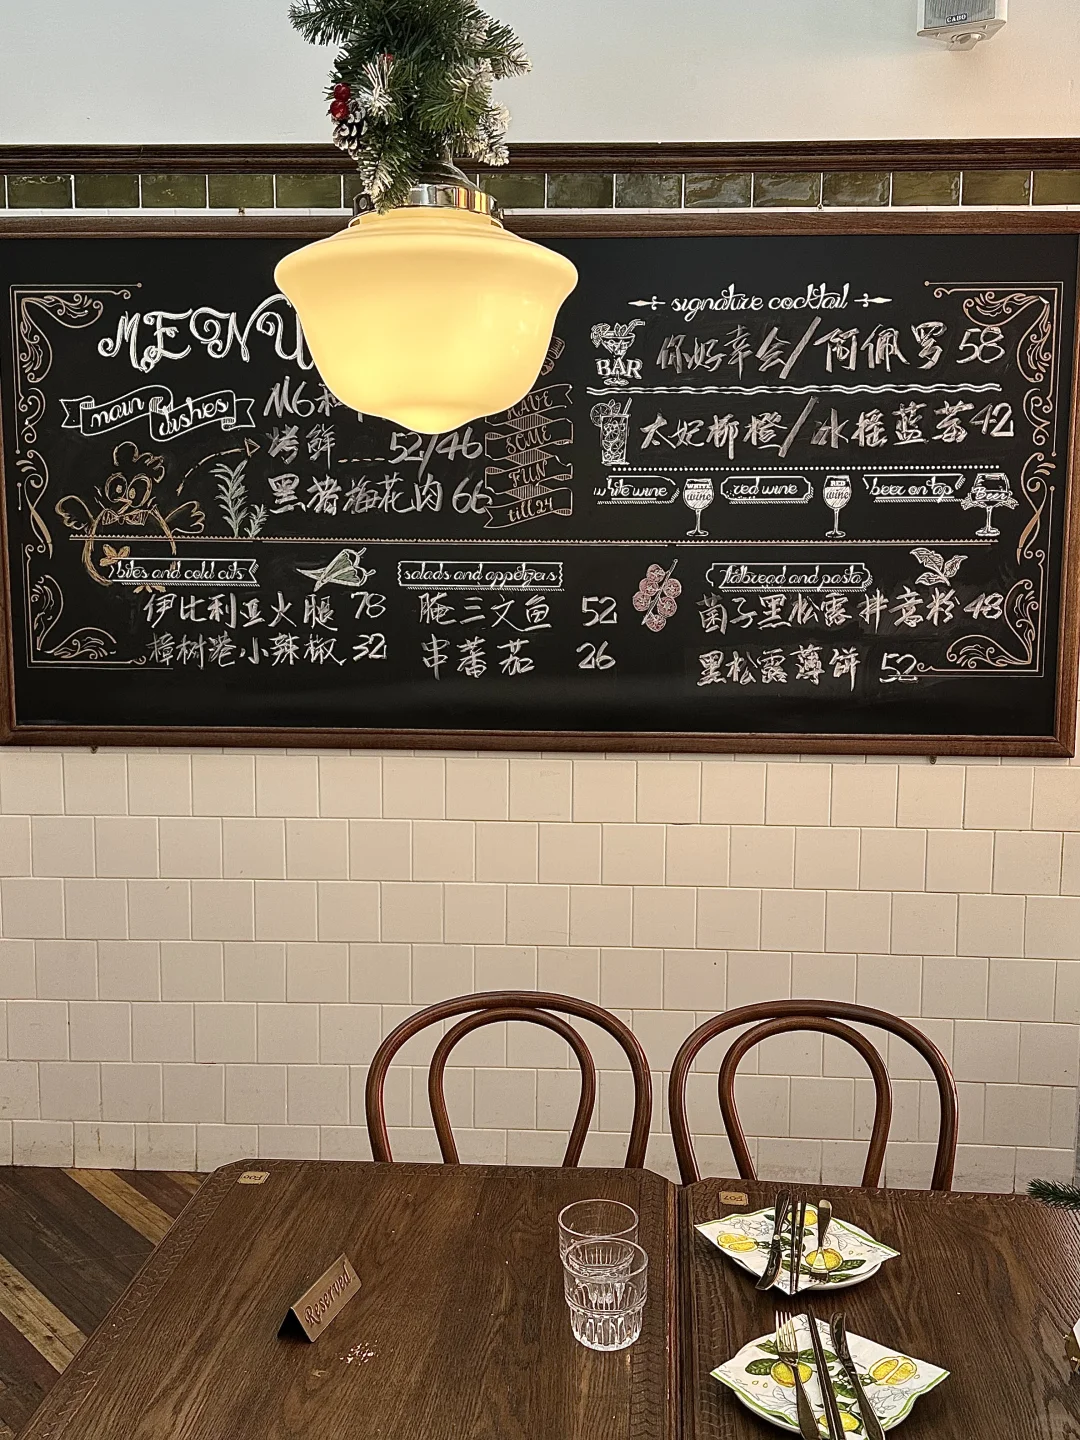 CABO
MENU
main dishes
M6和
烤鲜....52/46
黑猪梅花肉 66
HAVE
SOME
FUN
till 24
signature cocktail
BAR
你好幸会/阿佩罗 58
太妃柳橙/冰摇蓝莓 42
white wine
WHITE
wine
red wine
RED
wine
beer on tap
Beer
bites and cold cuts
伊比利亚火腿 78
樟树港小辣椒 32
salads and appetizers
腌三文鱼 52
串蕃茄 26
flatbread and pasta
菌子黑松露拌意粉 48
黑松露薄饼 52
F06
F07
Reserved